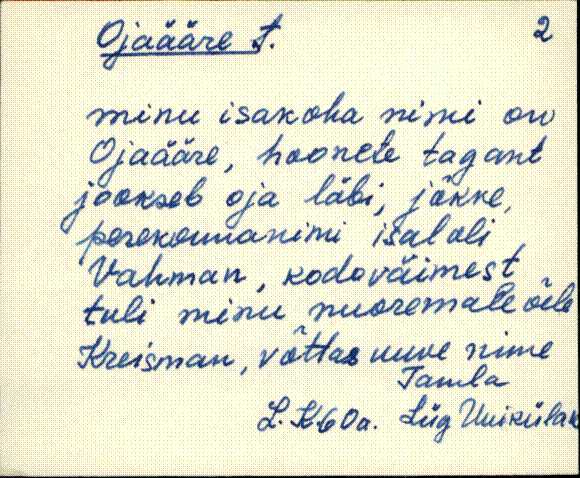 Ojaääre t. 2
minu isakoha nimi on
Ojaääre, hoonete tagant
jookseb oja läbi, jõkke,
perekonnanimi isal oli
Vahman, kodoväimest
tuli minu nuoremale õele
Kreisman, võttas uuve nime
Tamla
L. K 60a. Lüg Uniküla